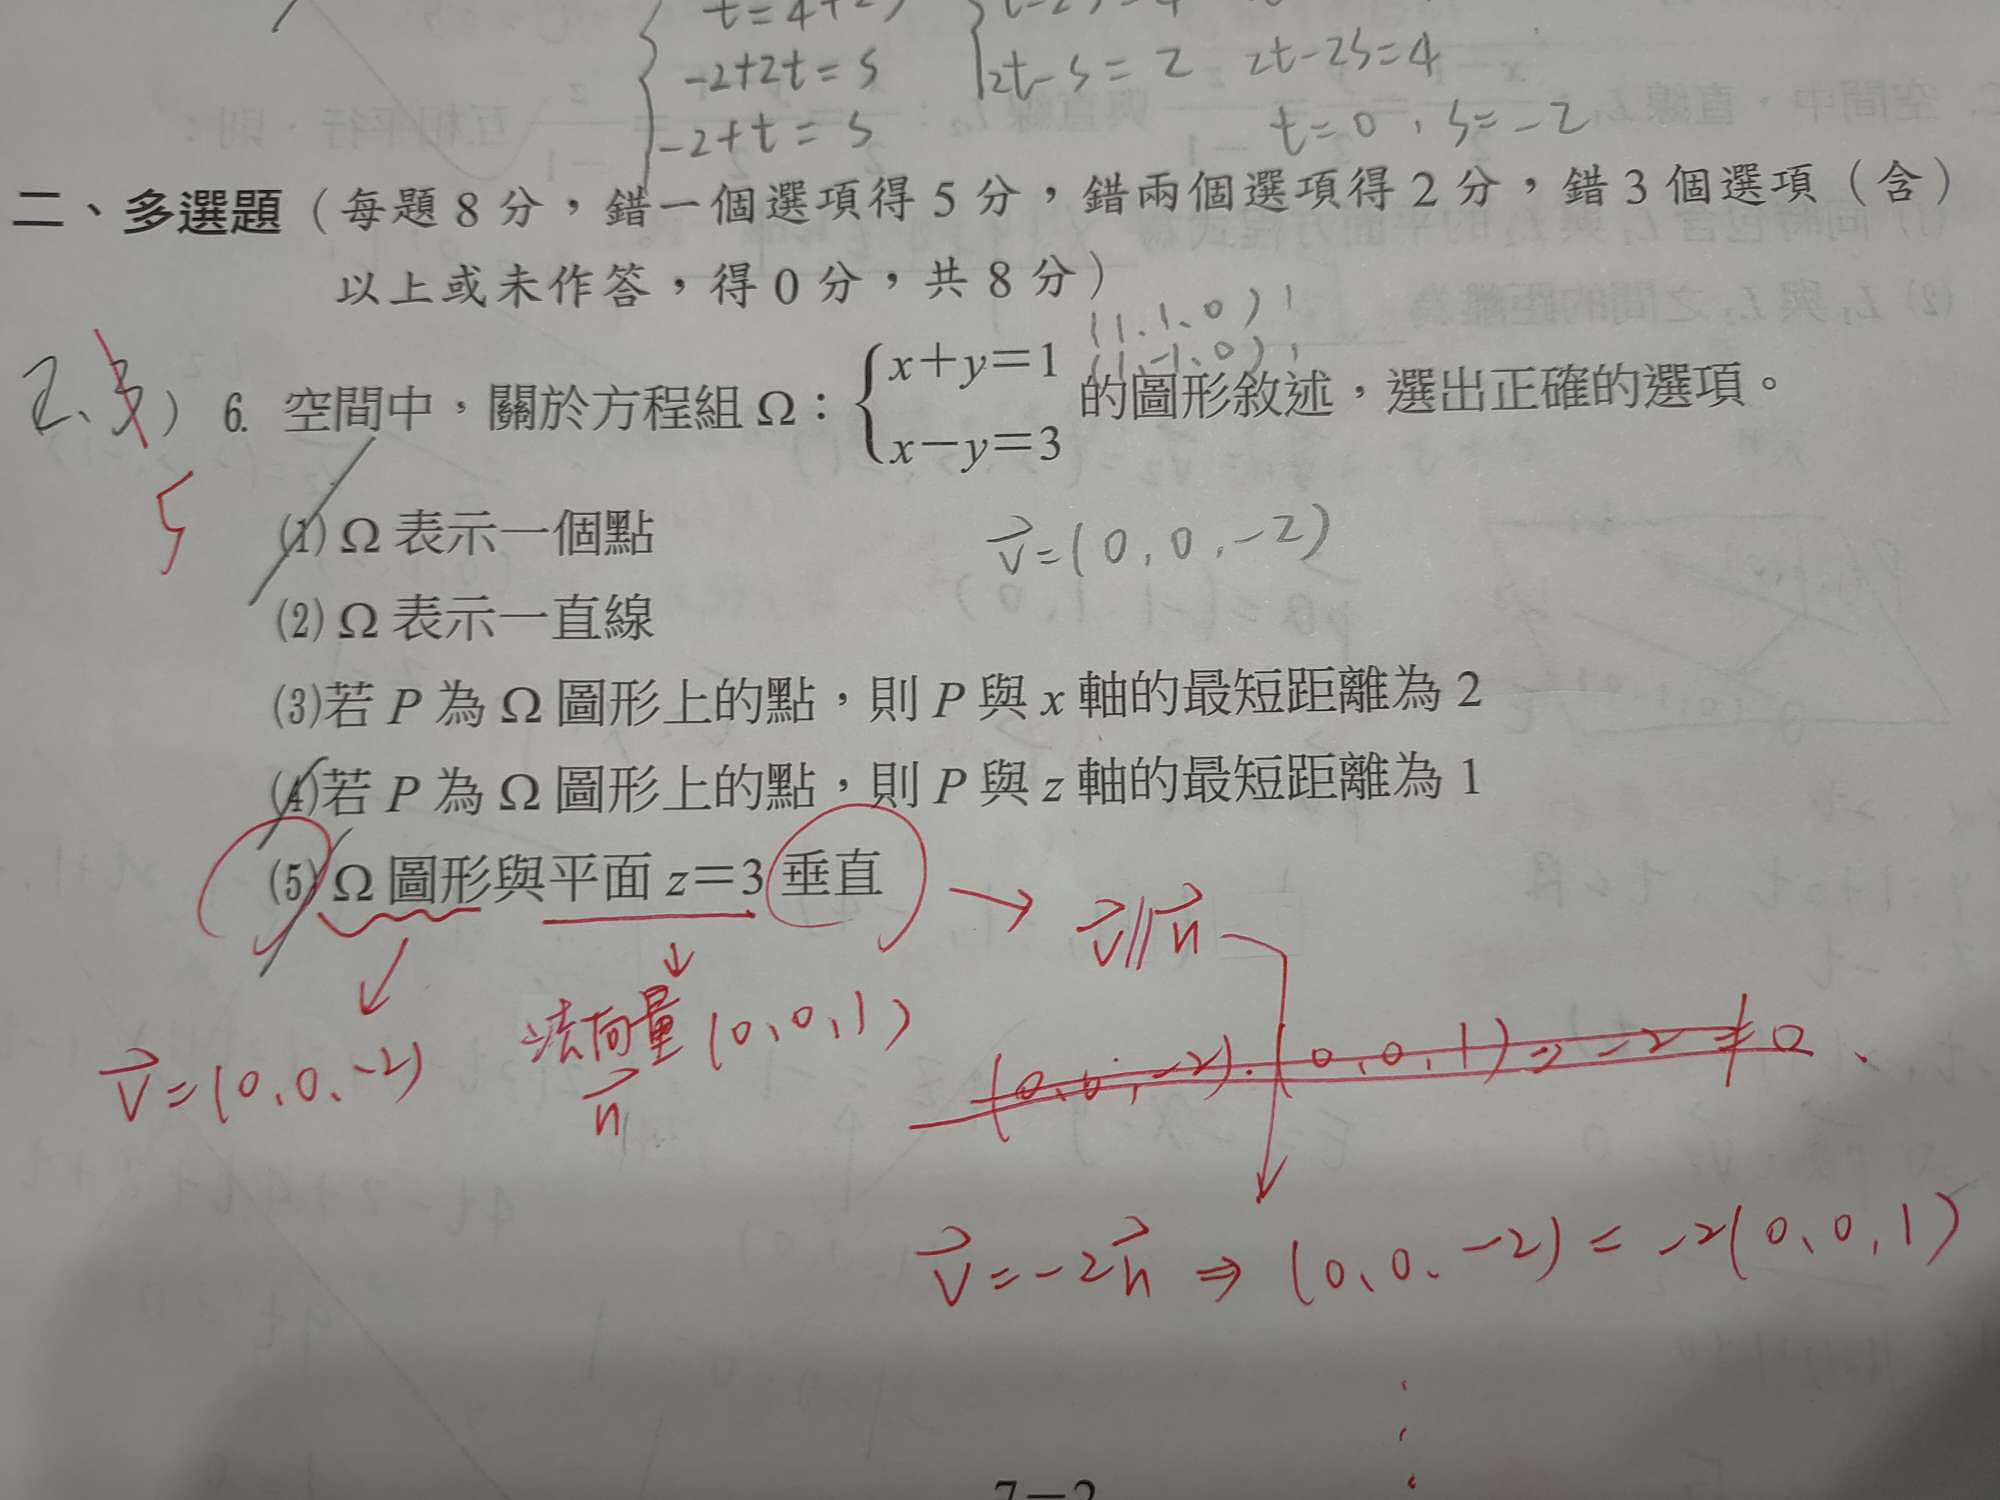 -2+2t=s
2t-s=2
2t-2s=4
-2+t=s
t=0,s=-2
二、多選題（每題8分，錯一個選項得5分，錯兩個選項得2分，錯3個選項（含）
以上或未作答，得0分，共8分）
(1,1,0)
(1,-1,0)
2、3
5
6. 空間中，關於方程組Ω：{x+y=1
x-y=3 的圖形敘述，選出正確的選項。
(1)Ω表示一個點
v=(0,0,-2)
(2)Ω表示一直線
(3)若P為Ω圖形上的點，則P與x軸的最短距離為2
(4)若P為Ω圖形上的點，則P與z軸的最短距離為1
(5)Ω圖形與平面z=3垂直
→ v//n
v=(0、0、-2)
法向量(0、0、1)
n
(0、0、-2)·(0、0、1)=-2≠0
v=-2n⇒(0、0、-2)=-2(0、0、1)
7-2